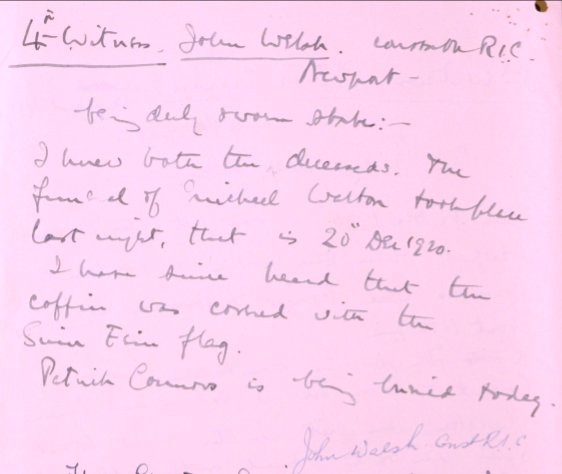 4th Witness. John Walsh. Constable RIC.
Newport -
being duly sworn states:-
I knew both the deceased. The
funeral of Michael Walton took place
last night, that is 20th Dec 1920.
I have since heard that the
coffin was covered with the
Sinn Fein flag.
Patrick Connors is being buried today.
John Walsh Const RIC